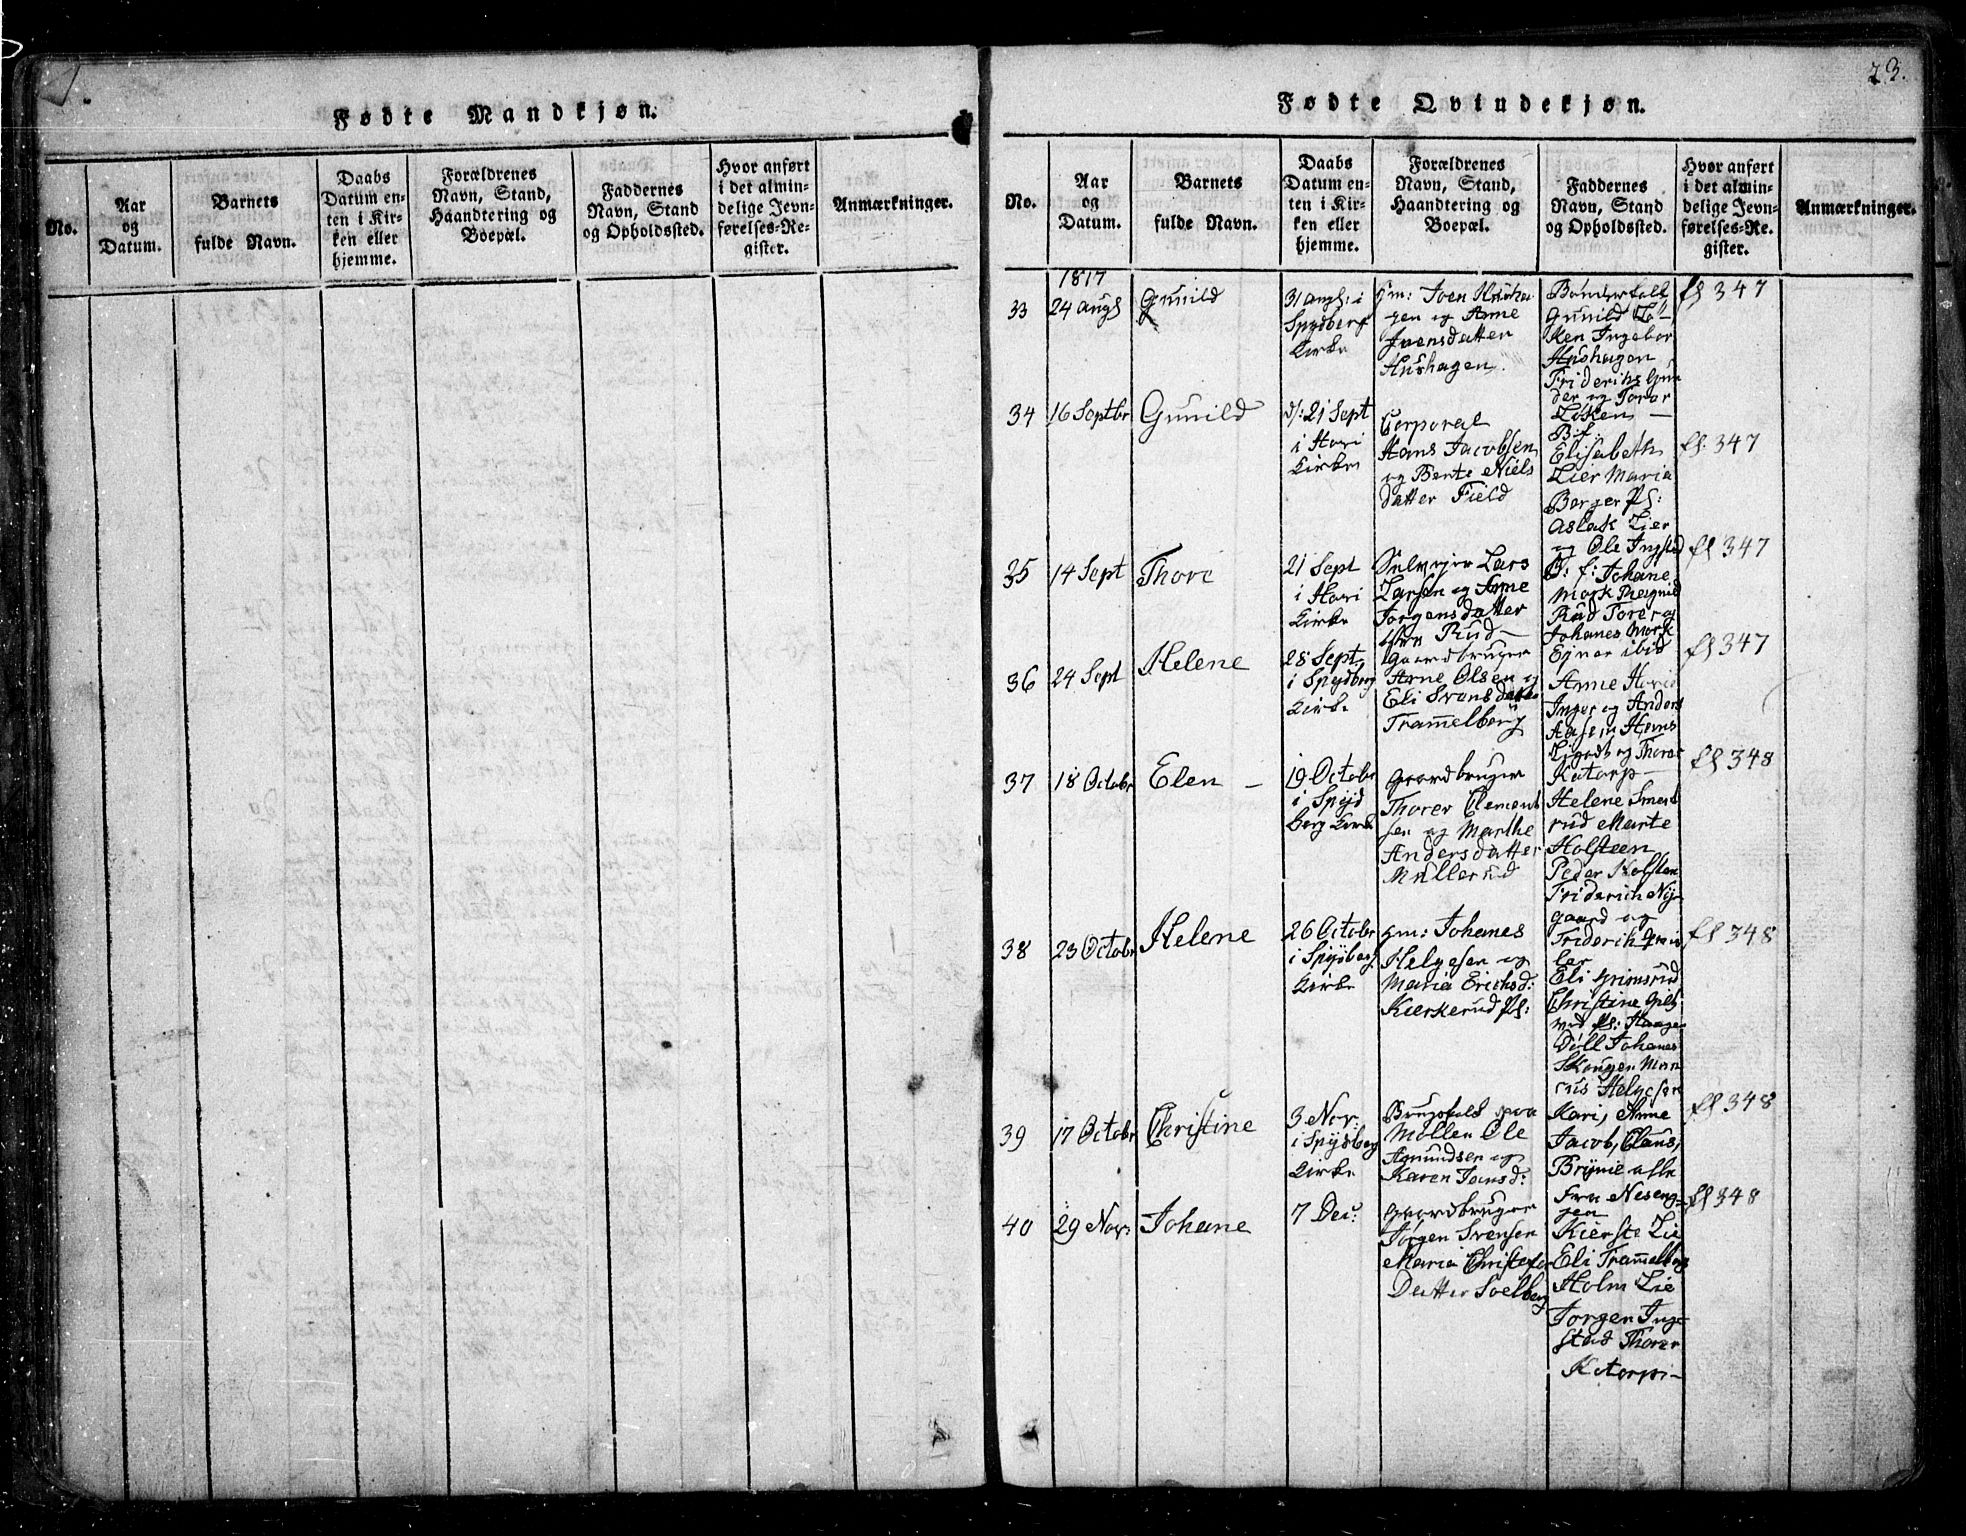 1.
Fødte Mandkjøn.
No.
Aar
og
Datum.
Barnets
fulde Navn.
Daabs
Datum en-
ten i Kir-
ken eller
hjemme.
Forældrenes
Navn, Stand,
Haandtering og
Boepæl.
Faddernes
Navn, Stand
og Opholdssted.
Hvor anført
i det almin-
delige Jevn-
førelses-Re-
gister.
Anmærkninger.
23.
Fødte Qvindekjøn.
No.
Aar
og
Datum.
Barnets
fulde Navn.
Daabs
Datum en-
ten i Kir-
ken eller
hjemme.
Forældrenes
Navn, Stand,
Haandtering og
Boepæl.
Faddernes
Navn, Stand
og Opholdssted.
Hvor anført
i det almin-
delige Jevn-
førelses-Re-
gister.
Anmærkninger.
1817
33
24 Augs
Gunild
31 Augs: i
Spydberg
Kirke
gm: Joen Husha
gen og Anne
Jvensdatter
Hushagen
Bonderfolk
Gunild Lø-
ken Ingebor
Hushagen
Friderichs Gun
der og Torer
Løken
fl 347
34
16 Septbr
Gunild
d: 21 Sept
i Hovi
Kirke
Corporal
Hans Jacobsen
og Bente Niels
datter Field
B: f:
Elisabeth
Lier Maria
Berger Pl:
Aslak Lier
og Ole Ingsted
fl: 347
35
14 Sept
Thore
21 Sept
i Hovi
Kirke
Selvejer Lars
Larsen og Anne
Jorgensdatter
Rud
B: f: Johane
Mork Ragnild
Rud Torer og
Johanes Mork
fl 347
36
24 Sept
Helene
28 Sept
i Spydberg
Kirke
gaardbruger
Arne Olsen og
Eli Svensdatter
Tramelborg
Ejnar ibid
Anne Hovi
Inger og Anders
Aasen Hans
Ligodt og Thorer
Katorp
fl 347
37
18 Octobr
Elen
19 Octobr
i Spyd
berg Kirke
gaardbruger
Thorer Clement
sen og Marthe
Andersdatter
Møllerud
Helene Smert
rud Marte
Holsteen
Peder Holsten
Friderich Ny-
gaard og
Friderich
fl 348
38
23 Octobr
Helene
26 Octobr
i Spydberg
Kirke
gm: Johanes
Helgesen og
Maria Erichsd:
Kierkerud Pl:
Eli Grimsrud
Christine
Døll Johanes
Skougen
Helgesen
fl 348
39
17 Octobr
Christine
3 Nov:
i Spydberg
Kirke
Brugsfolk paa
Møllen Ole
Amundsen og
Karen Jensd:
Kari, Anne
Jacob, Claus,
Brynie alle
fra Neseng-
gen
fl 348
40
29 Nov:
Johane
7 Dec:
gaardbruger
Jorgen Svensen
Maria Christofer
Datter Soelberg
Kierste Lie
Eli Tramelborg
Holm Lie
Jorgen Inge
stad Thorer
Katorp
fl 348